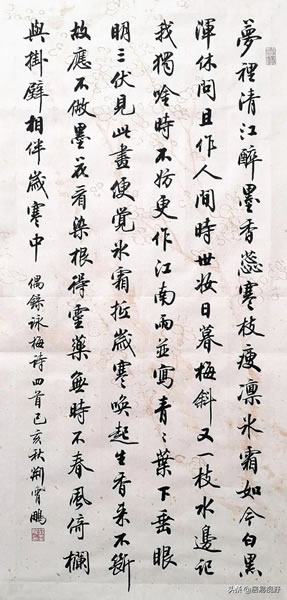 夢裡清江醉墨香蕊寒枝瘦凜冰霜如今白黑
渾休問且作人間時世妝日暮梅斜又一枝水邊記
我獨吟時不妨更作江南雨並寫青々葉下垂眼
明三伏見此畫便覺冰霜抵歲寒喚起生香來不斷
故應不做墨花看染根得靈藥無時不春風倚欄
與掛壁相伴歲寒中
偶錄詠梅詩四首己亥秋荆霄鵬
头条